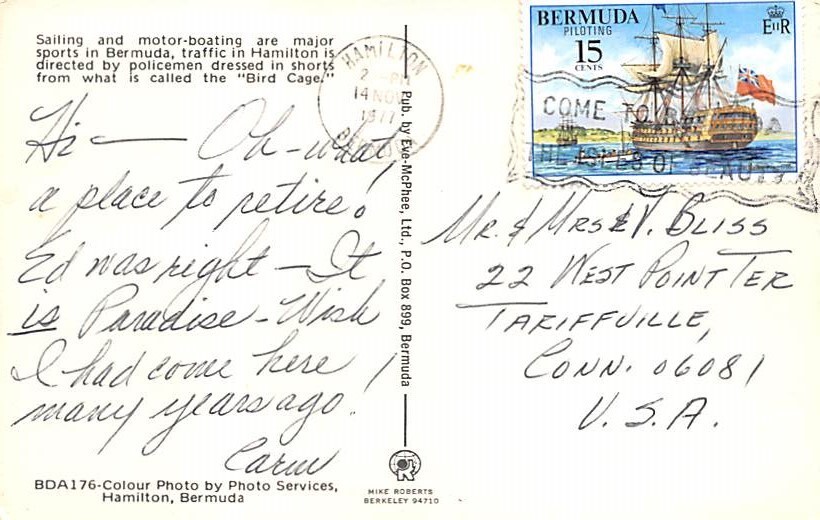 Sailing and motor-boating are major
sports in Bermuda, traffic in Hamilton is
directed by policemen dressed in shorts
from what is called the "Bird Cage."
Hi — Oh-what
a place to retire!
Ed was right — It
is Paradise - Wish
I had come here
many years ago!
BDA176-Colour Photo by Photo Services,
Hamilton, Bermuda
Pub. by Eve-McPhee, Ltd., P.O. Box 899, Bermuda
MIKE ROBERTS
BERKELEY 94710
HAMILTON
2 PM
14 NOV
1977
BERMUDA
PILOTING
15
CENTS
EIIR
COME TO
THE ISLES OF BEAUTY
Mr. & Mrs V. Bliss
22 West Point Ter
Tariffville,
Conn. 06081
U.S.A.